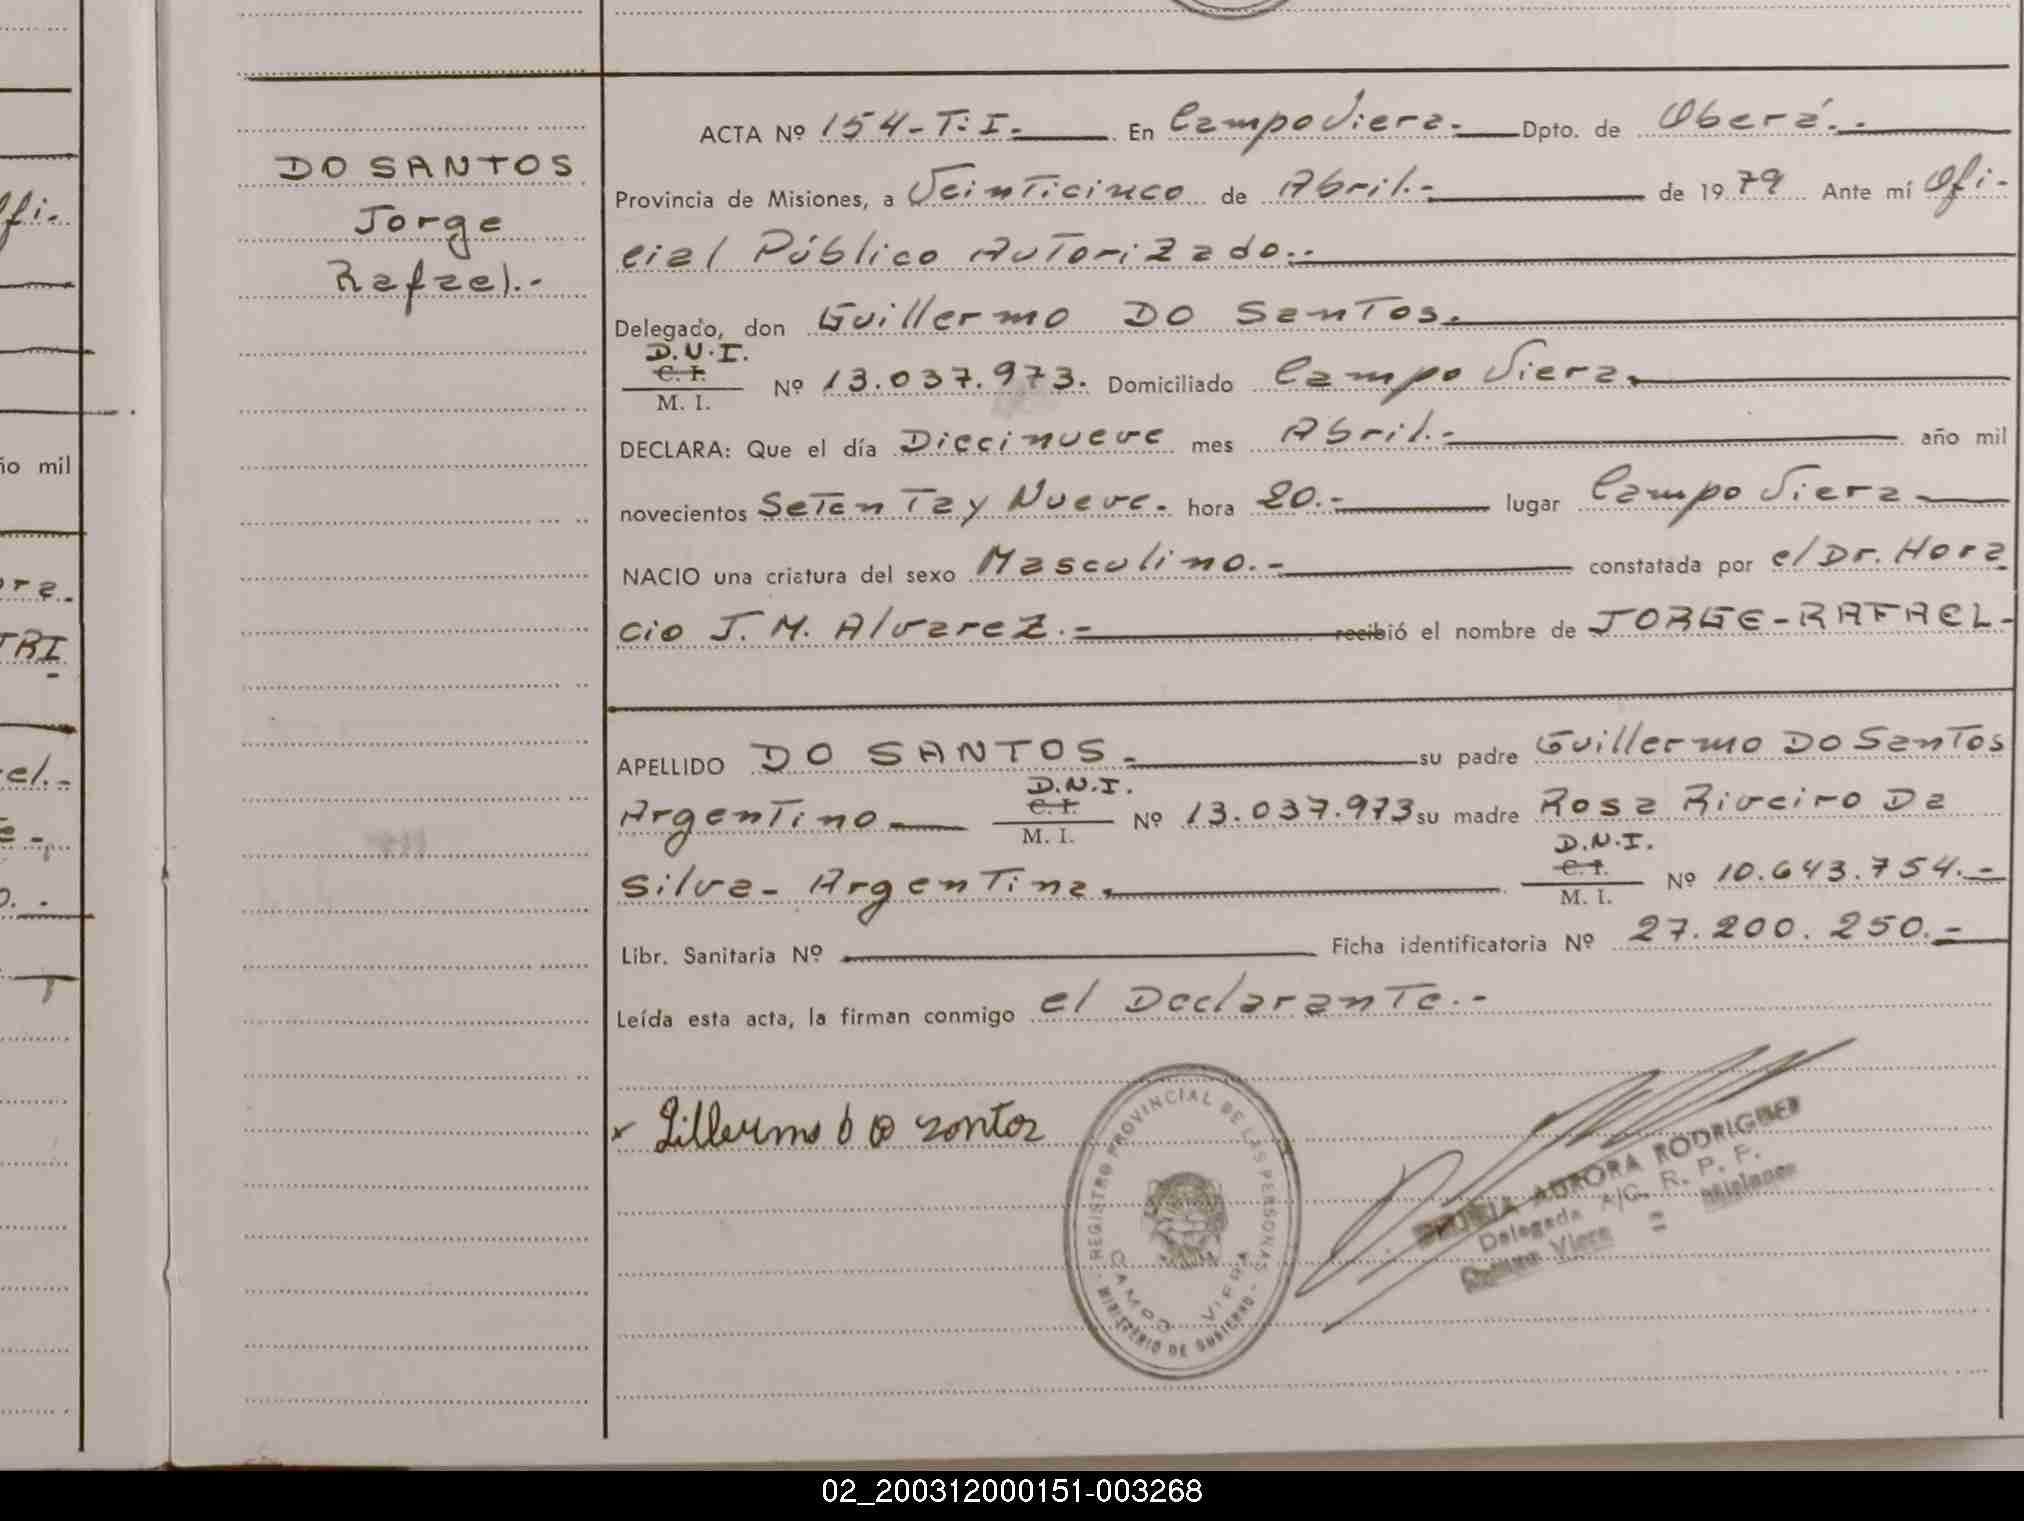 DO SANTOS
Jorge
Rafael.-
ACTA Nº 154-T:I.- En Campo Viera.- Dpto. de Oberá.-
Provincia de Misiones, a Veinticinco de Abril.- de 1979 Ante mí Ofi-
cial Público Autorizado.-
Delegado, don Guillermo DO Santos.
D.N.I.
C. I.
M. I. Nº 13.037.973. Domiciliado Campo Viera.
DECLARA: Que el día Diecinueve mes Abril.- año mil
novecientos Setenta y Nueve. hora 20.- lugar Campo Viera
NACIO una criatura del sexo Masculino.- constatada por el Dr. Hora
cio J. M. Alvarez.- recibió el nombre de JORGE-RAFAEL-
APELLIDO DO SANTOS.- su padre Guillermo DO Santos
D.N.I.
Argentino C. I. Nº 13.037.973 su madre Rosa Riveiro Da
M. I.
D.N.I.
Silva- Argentina. C. I. Nº 10.643.754.-
M. I.
Libr. Sanitaria Nº Ficha identificatoria Nº 27.200.250.-
Leída esta acta, la firman conmigo el Declarante.-
x Gillermo do santos
REGISTRO PROVINCIAL DE LAS PERSONAS
CAMPO VIERA
MINISTERIO DE GOBIERNO
AURORA RODRIGUEZ
Delegada A/C. R. P. P.
Campo Viera = Misiones
fi-
ño mil
ora.
TRI
el.-
02_200312000151-003268